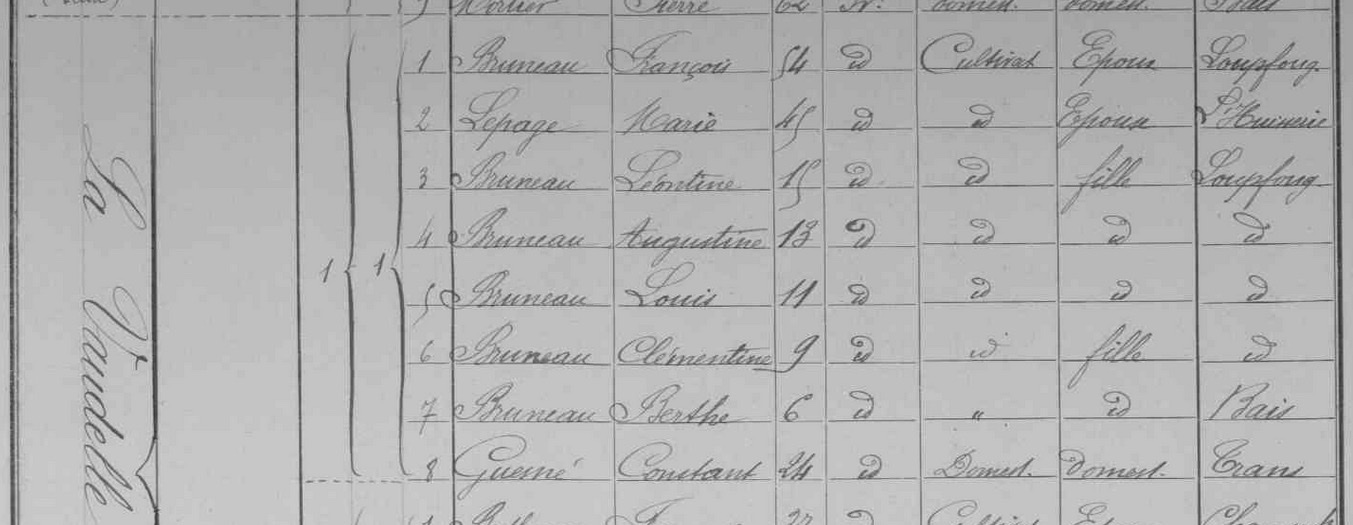 Mortier Pierre 62 domest. domest. Bais
1 1 1 Bruneau François 54 id Cultivat Epoux Loupfoug.
2 Lepage Marie 45 id id Epouse St Huinerie
3 Bruneau Léontine 15 id id fille Loupfoug.
4 Bruneau Augustine 13 id id id id
5 Bruneau Louis 11 id id id id
6 Bruneau Clémentine 9 id id fille id
7 Bruneau Berthe 6 id " id Bais
8 Guerné Constant 24 id Domest. domest. Trans
La Vaudelle